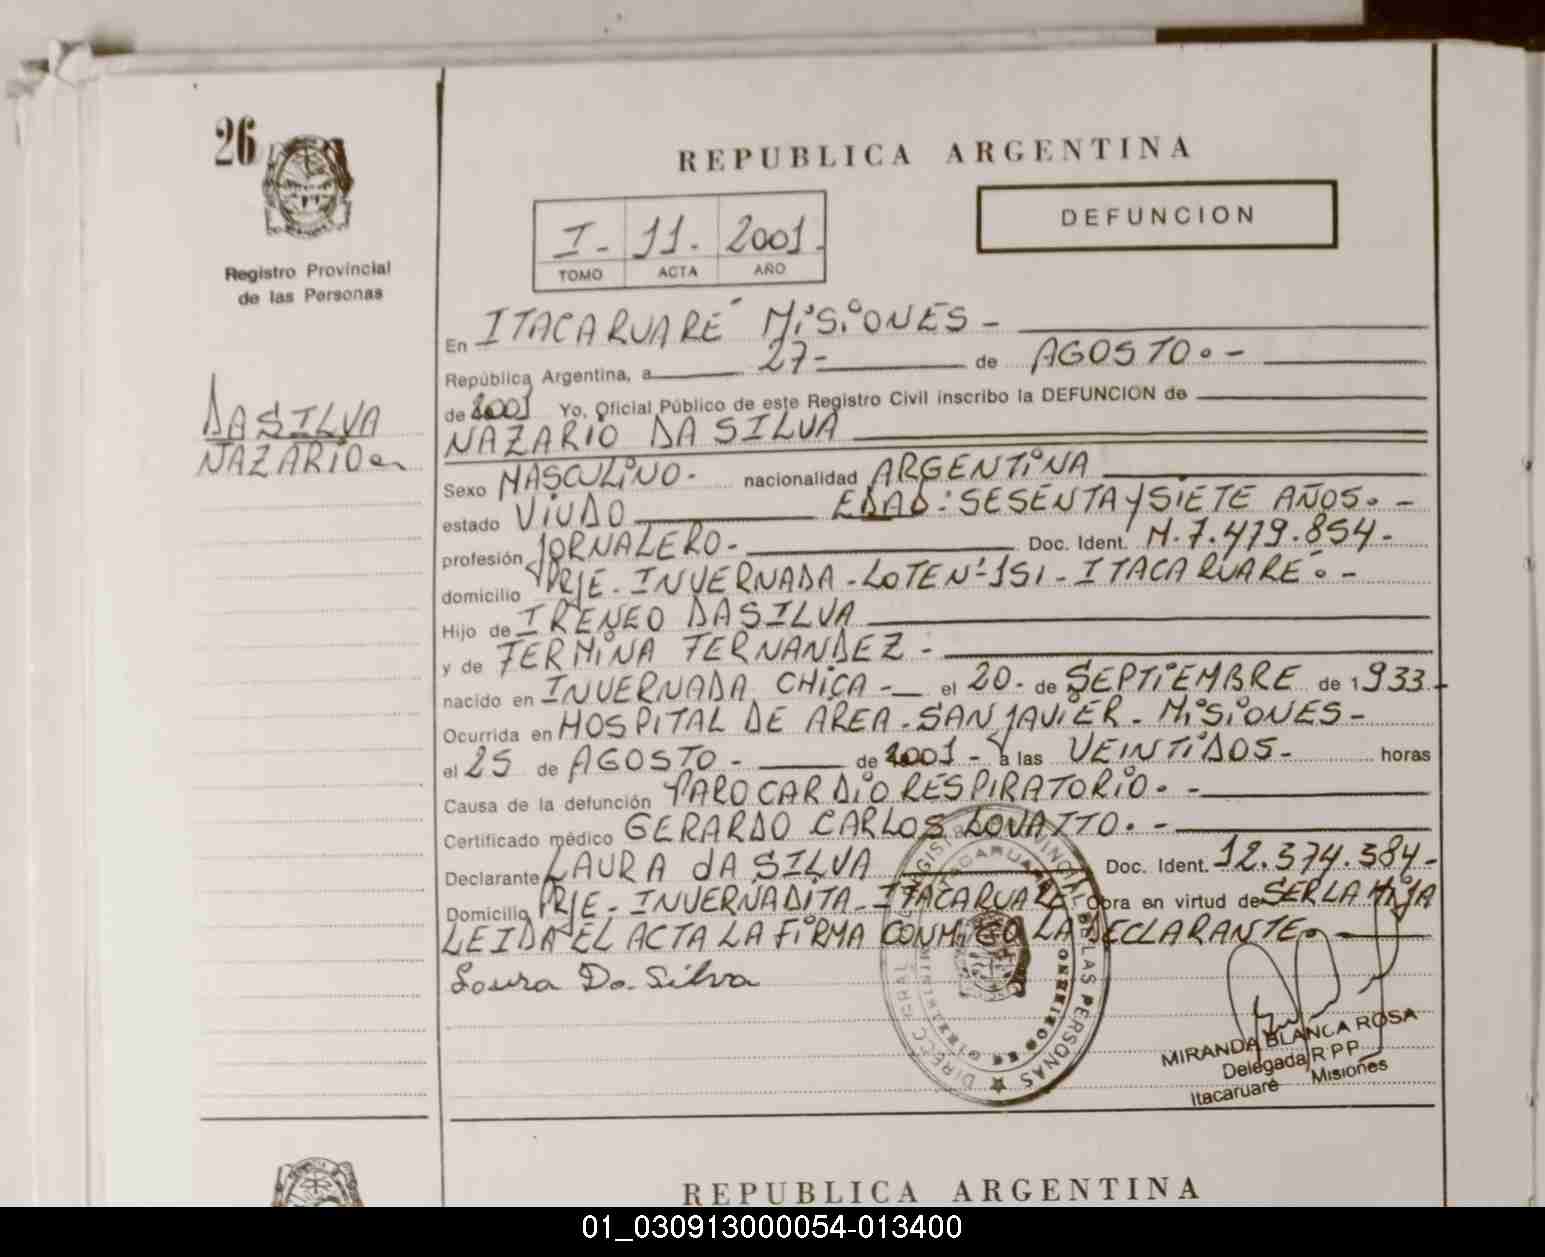 26
REPUBLICA ARGENTINA
I- 11. 2001.
TOMO ACTA AÑO
DEFUNCION
Registro Provincial
de las Personas
DA SILVA
NAZARIO
En ITACARUARÉ MISIONES -
República Argentina, a 27- de AGOSTO.-
de 2001 Yo, Oficial Público de este Registro Civil inscribo la DEFUNCION de
NAZARIO DA SILVA
Sexo MASCULINO- nacionalidad ARGENTINA
estado VIUDO EDAD: SESENTA Y SIETE AÑOS.-
profesión JORNALERO- Doc. Ident. M.7.479.854-
domicilio PJE- INVERNADA-LOTE Nº 151-ITACARUARÉ.-
Hijo de IRENEO DA SILVA
y de FERMINA FERNANDEZ-
nacido en INVERNADA CHICA- el 20- de SEPTIEMBRE de 1933-
Ocurrida en HOSPITAL DE AREA-SAN JAVIER-MISIONES-
el 25 de AGOSTO- de 2001- a las VEINTIDOS- horas
Causa de la defunción PARO CARDIO RESPIRATORIO.-
Certificado médico GERARDO CARLOS LOVATTO.-
Declarante LAURA dA SILVA Doc. Ident. 12.374.384-
Domicilio PJE-INVERNADITA-ITACARUARE Obra en virtud de SER LA HIJA
LEIDA EL ACTA LA FIRMA CONMIGO LA DECLARANTE.-
Laura Da Silva
DIRECC. GRAL. DEL REGISTRO PROVINCIAL DE LAS PERSONAS
ITACARUARE
MIRANDA BLANCA ROSA
Delegada R P P
Itacaruaré Misiones
REPUBLICA ARGENTINA
01_030913000054-013400